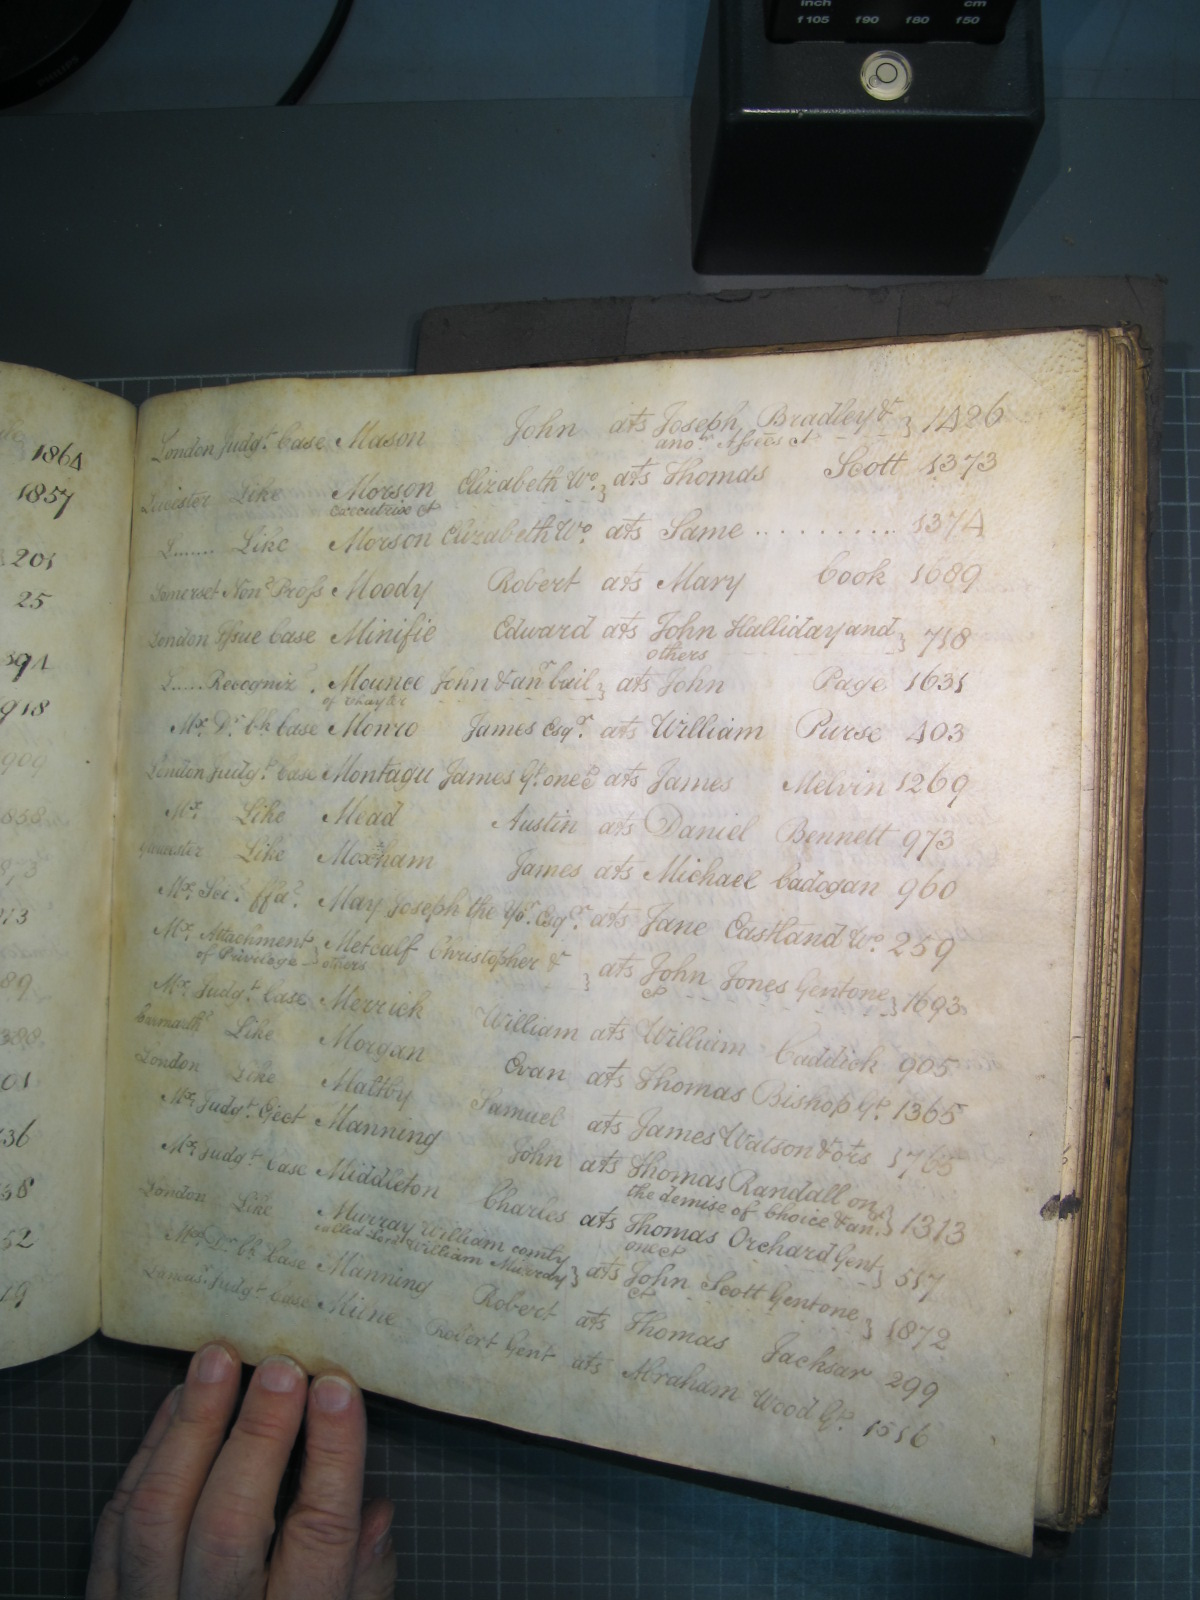 inch cm
f105 f90 f80 f50
PHILIPS
1864
1857
201
25
594
918
909
858
873
89
388
01
136
58
52
19
London Judgt. Case Mason John ats Joseph Bradley & } 1426
anor. Assees &c
Leicester Like Morson Elizabeth Wo. } ats Thomas Scott 1373
Executrix &c
L....... Like Morson Elizabeth Wo. ats Same .......... 1374
Somerset Non Pross Moody Robert ats Mary Cook 1089
London Issue Case Minifie Edward ats John Halliday and } 718
others
L..... Recogniz. Mounce John & anr bail } ats John Page 1631
of
Mx. Dr. bk Case Monro James Esqr. ats William Purse 403
London Judgt. Case Montagu James Gt. one &c ats James Melvin 1269
Mx. Like Mead Austin ats Daniel Bennett 973
Gloucester Like Moxham James ats Michael Cadogan 960
Mx. Sci. ffa. May Joseph the Yor. Esqr. ats Jane Eastland Wo. 259
Mx. Attachment Metcalf Christopher & } ats John Jones Gent one } 1693
of Priviloge others &c
Mx. Judgt. Case Merrick William ats William Caddick 905
Carmarth Like Morgan Evan ats Thomas Bishop Gt. 1365
London Like Maltby Samuel ats James Watson & ors 1765
Mx. Judgt. Eject Manning John ats Thomas Randall on } 1313
the demise of Choice & anr.
Mx. Judgt. Case Middleton Charles ats Thomas Orchard Gent } 517
one &c
London Like Murray William comly } ats John Scott Gent one } 1872
called Lord William Murray &c
Mx. Dr. bk Case Manning Robert ats Thomas Jacksar 299
Lancasr. Judgt. Case Milne Robert Gent ats Abraham Wood Gt. 1516